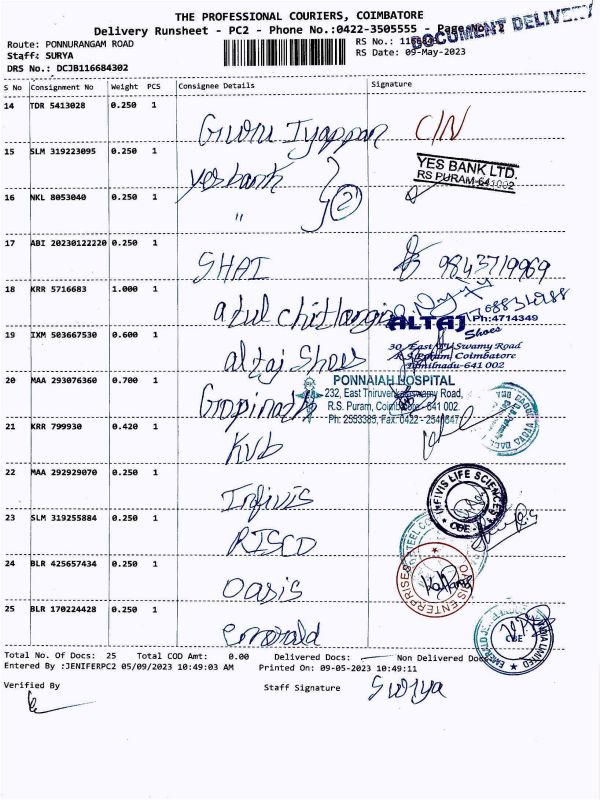 THE PROFESSIONAL COURIERS, COIMBATORE
Delivery Runsheet - PC2 - Phone No.:0422-3505555 - Page No.: 2
DOCUMENT DELIVERY
Route: PONNURANGAM ROAD
Staff: SURYA
DRS No.: DCJB116684302
RS No.:
RS Date: 09-May-2023
S No Consignment No Weight PCS Consignee Details Signature
14 TDR 5413028 0.250 1 Guru Iyappan C/N
15 SLM 319223095 0.250 1 yes bank
YES BANK LTD.
RS PURAM-641002
16 NKL 8053040 0.250 1 " 2
17 ABI 20230122220 0.250 1 SHAI 9843719969
18 KRR 5716683 1.000 1 atul chitlangia
ALTAJ Ph:4714349
Shoes
30, East TV Swamy Road
R.S Puram, Coimbatore
Tamilnadu-641 002
19 IXM 503667530 0.600 1 altaj Shoes
20 MAA 293076360 0.700 1 Gopinath
PONNAIAH HOSPITAL
232, East Thiruvenkataswamy Road,
R.S. Puram, Coimbatore - 641 002.
Ph: 2553365, Fax: 0422 - 2540647
21 KRR 799930 0.420 1 KVB
22 MAA 292929070 0.250 1 Infivis
INFIVIS LIFE SCIENCES
CBE
23 SLM 319255884 0.250 1 RISCO
24 BLR 425657434 0.250 1 Oasis
OASIS ENTERPRISES
25 BLR 170224428 0.250 1 emerald
EMERALD JEWEL INDUSTRY INDIA LIMITED
CBE
Total No. Of Docs: 25 Total COD Amt: 0.00 Delivered Docs: Non Delivered Docs
Entered By :JENIFERPC2 05/09/2023 10:49:03 AM Printed On: 09-05-2023 10:49:11
Verified By
Staff Signature Surya